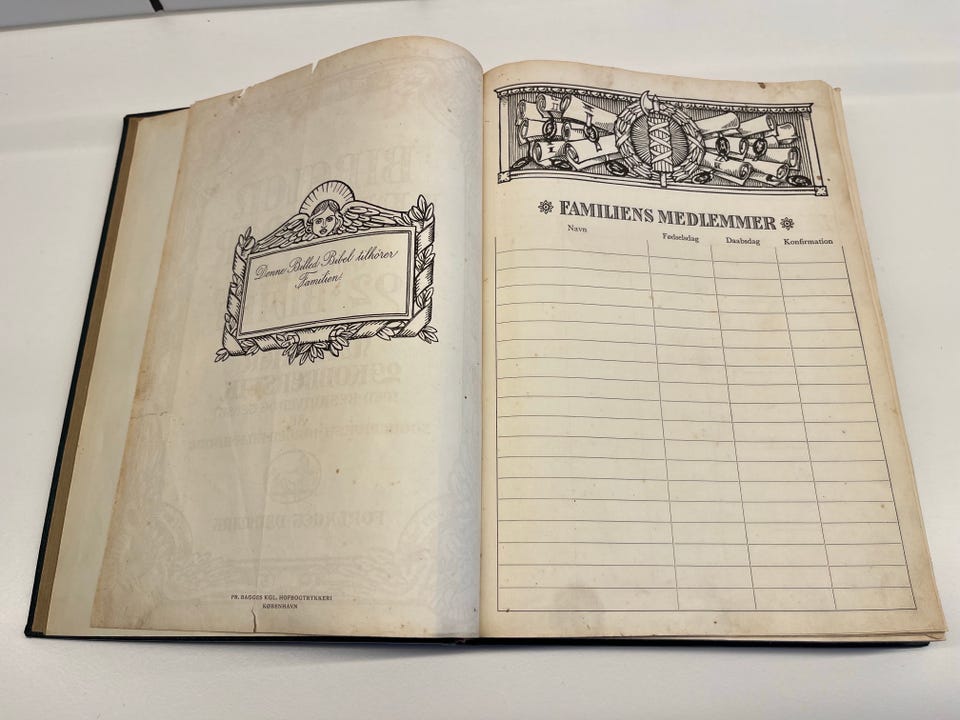 Denne Billed-Bibel tilhører
Familien:
FR. BAGGES KGL. HOFBOGTRYKKERI
KØBENHAVN
FAMILIENS MEDLEMMER
Navn Fødselsdag Daabsdag Konfirmation